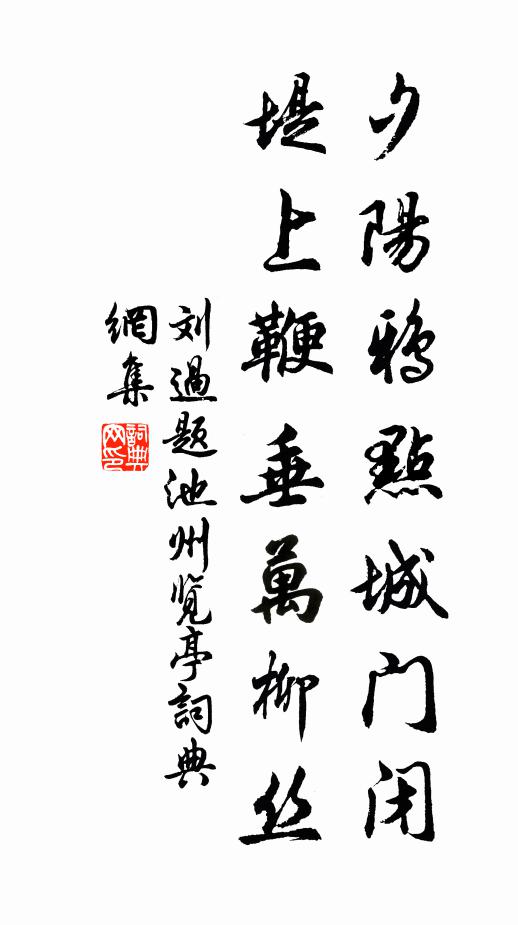 夕陽鴉點城门闭
堤上鞭垂萬柳丝
刘過题池州览亭詞典
網集
詞典網印